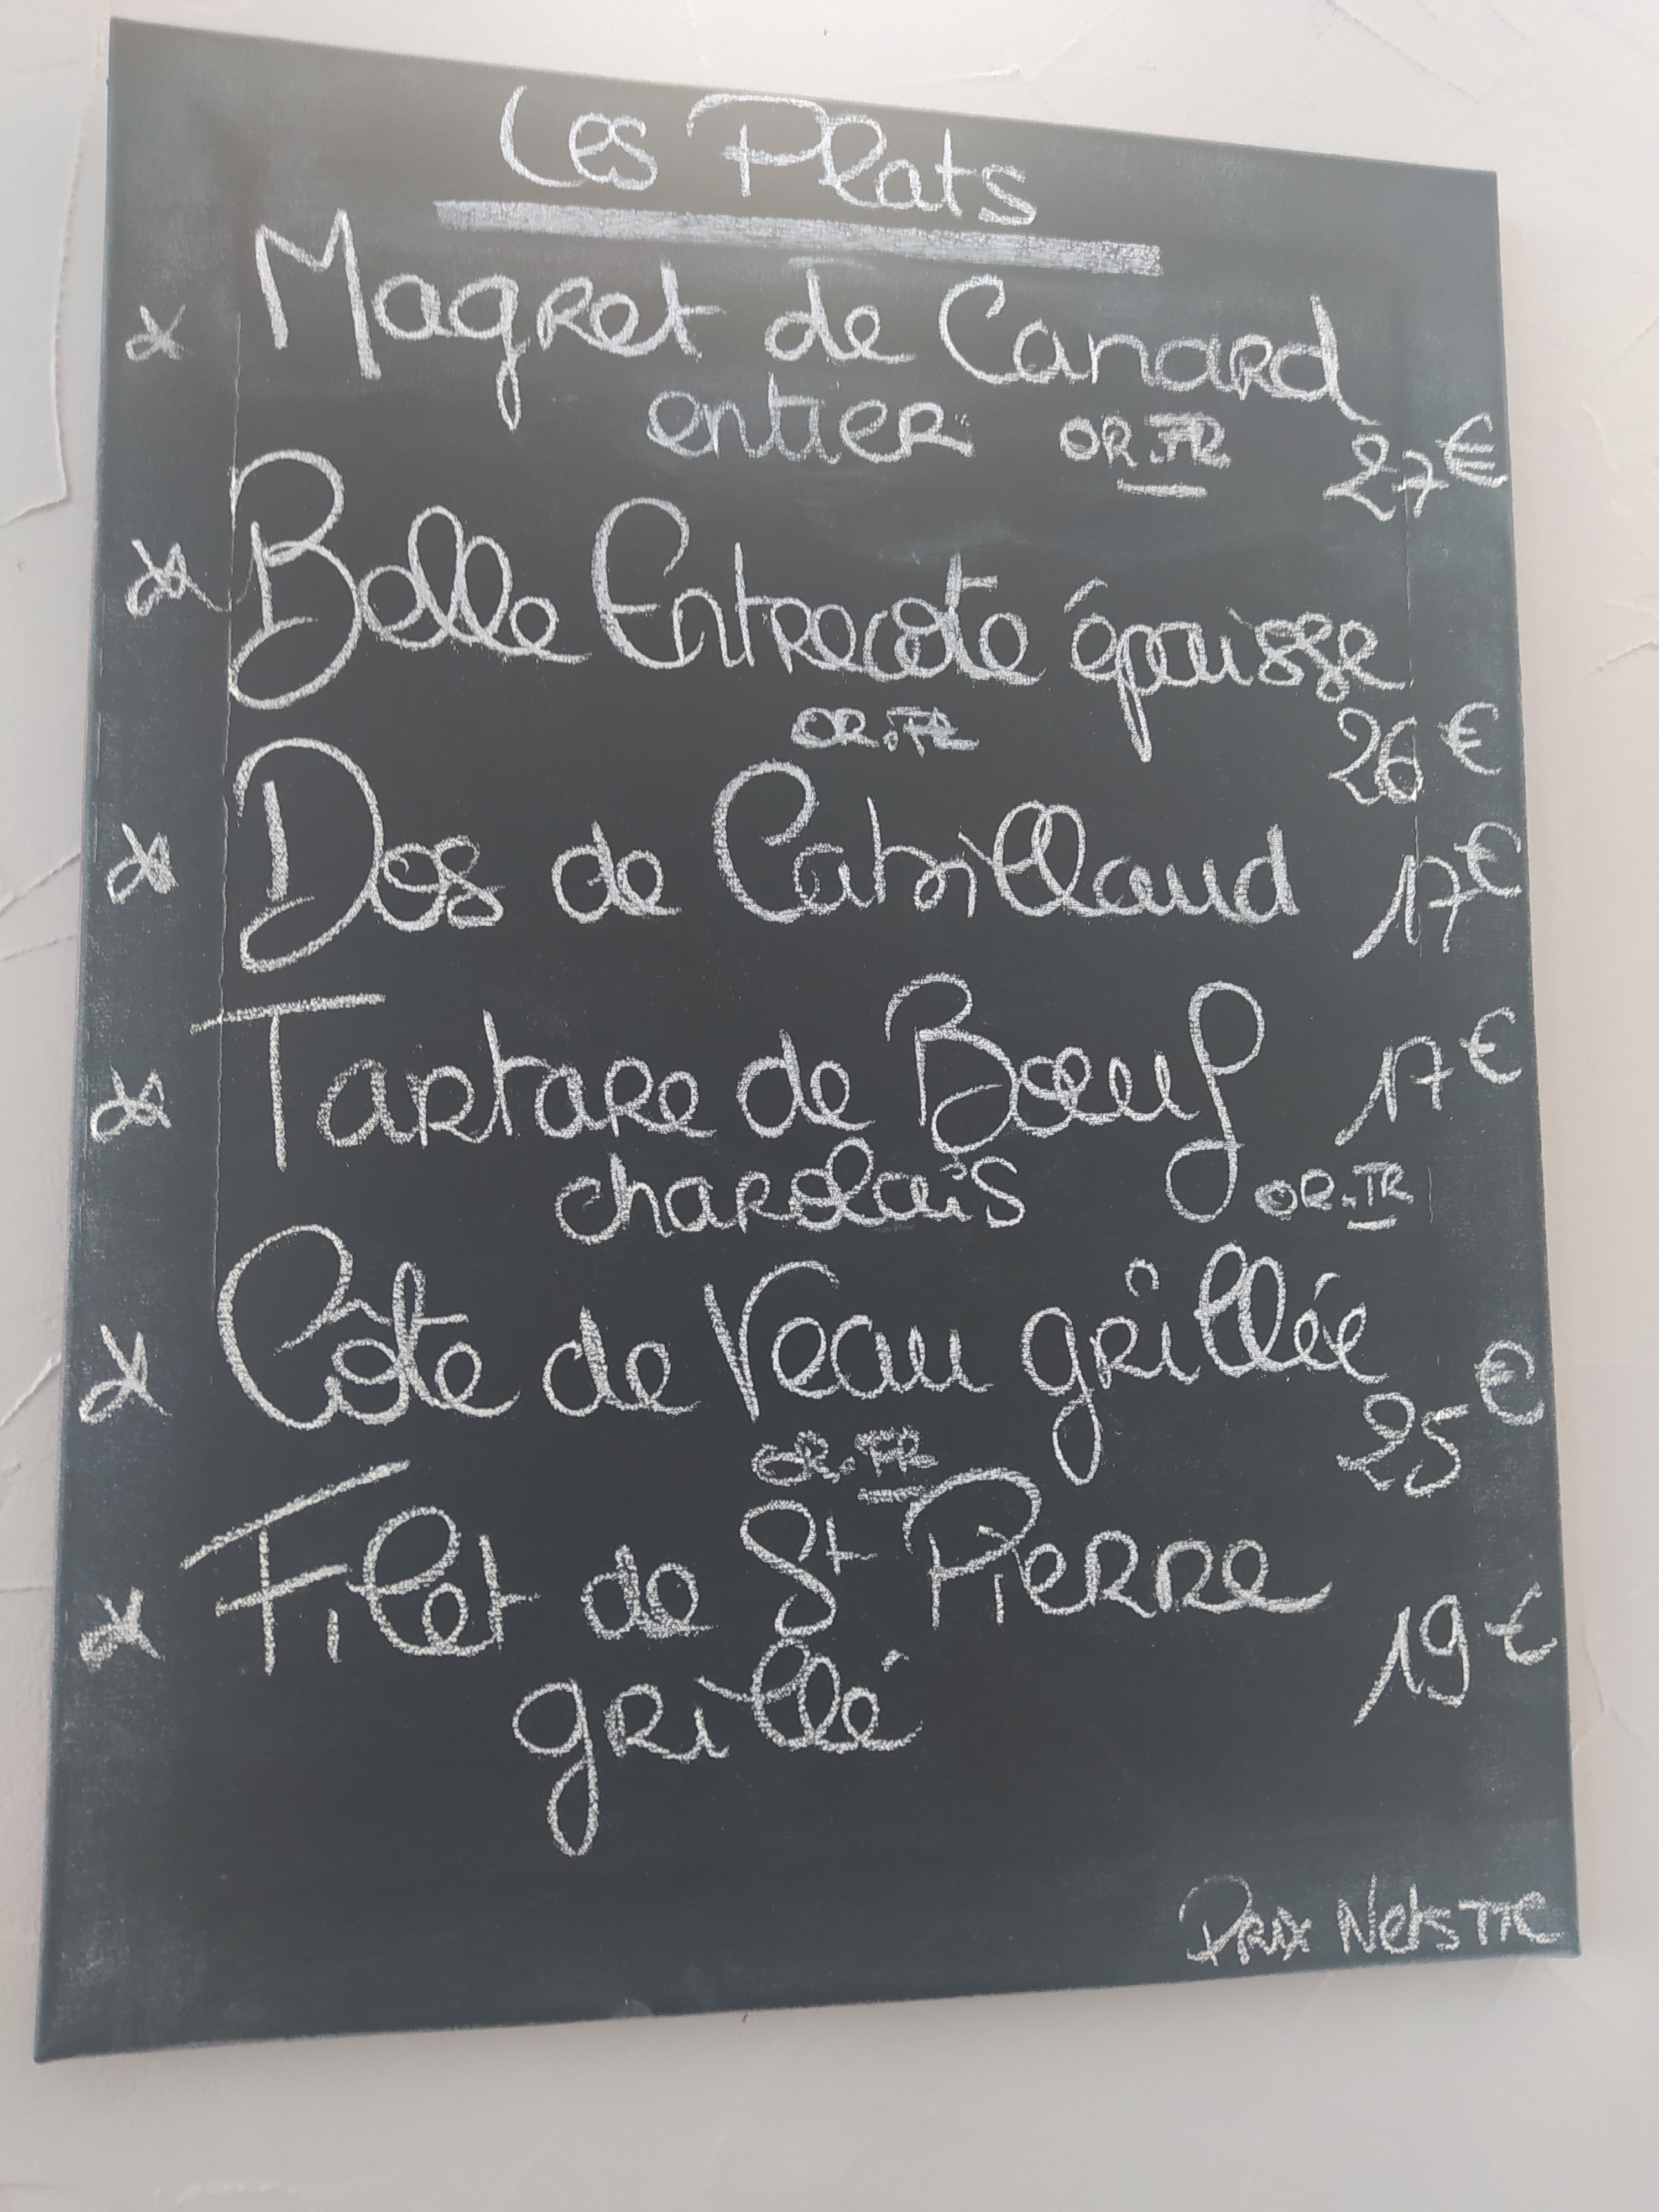 Les Plats
* Magret de Canard
entier OR.FR 27€
* Belle Entrecote épaisse
OR.FR 26€
* Dos de Cabillaud 17€
* Tartare de Bœuf 17€
charolais OR.FR
* Côte de Veau grillée
OR.FR 25€
* Filet de St Pierre
grillé 19€
Prix Nets TTC